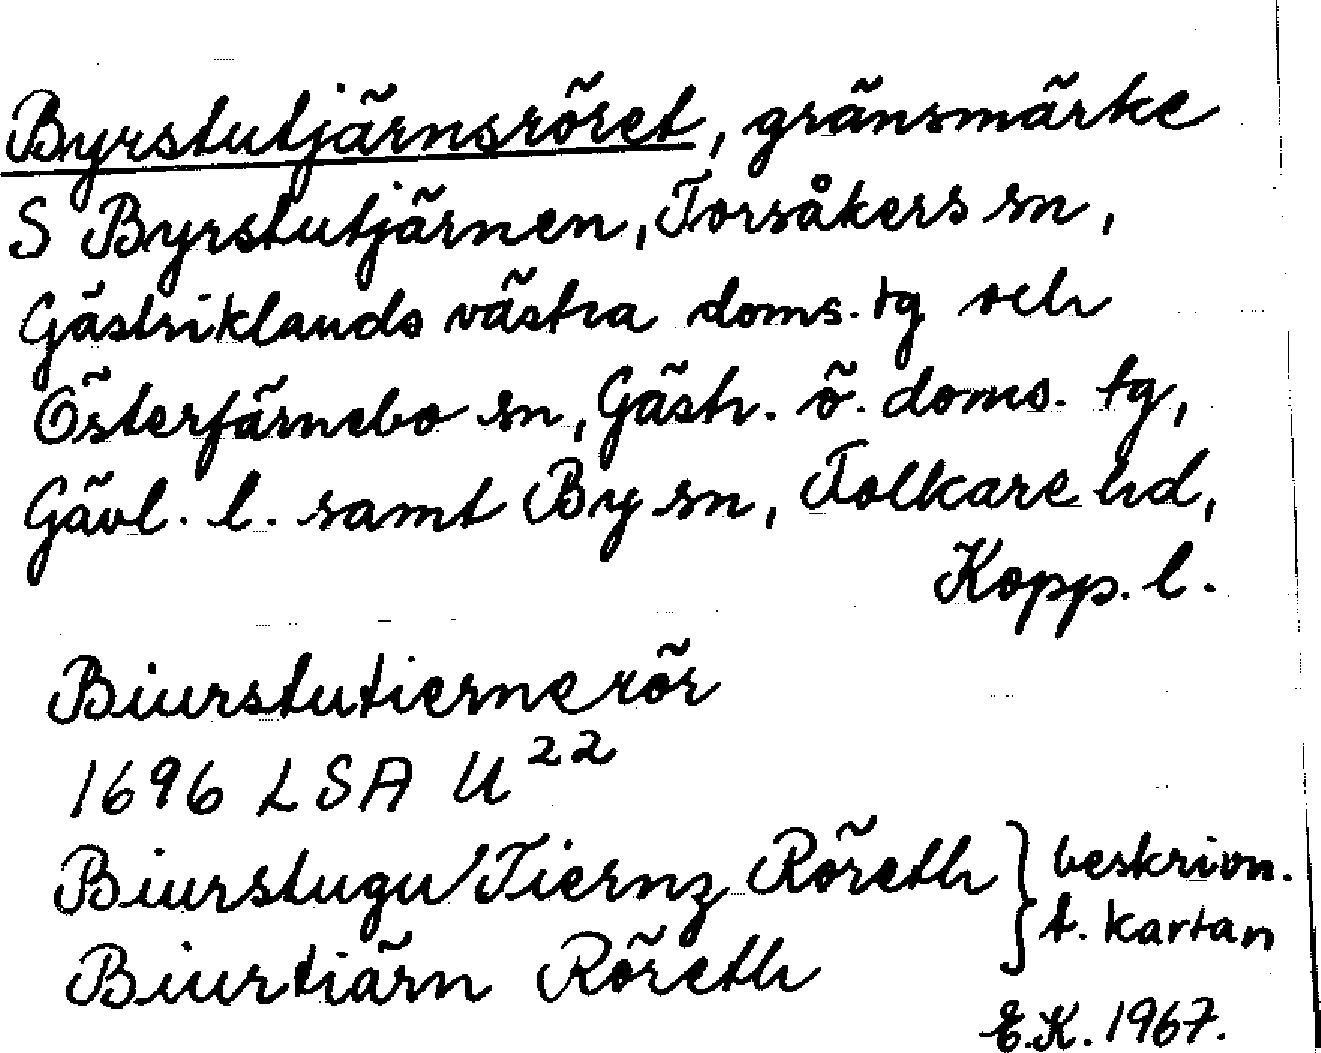 Byrstutjärnsröret, gränsmärke
S Byrstutjärnen, Torsåkers sn,
Gästriklands västra doms. tg och
Österfärnebo sn, Gästr. ö. doms. tg,
Gävl. l. samt By sn, Folkare hd,
Kopp. l.
Biurstutierne rör
1696 LSA U²²
Biurstugu Tiernz Röreth } beskrivn.
Biurtiärn Röreth } t. kartan
E.K. 1967.